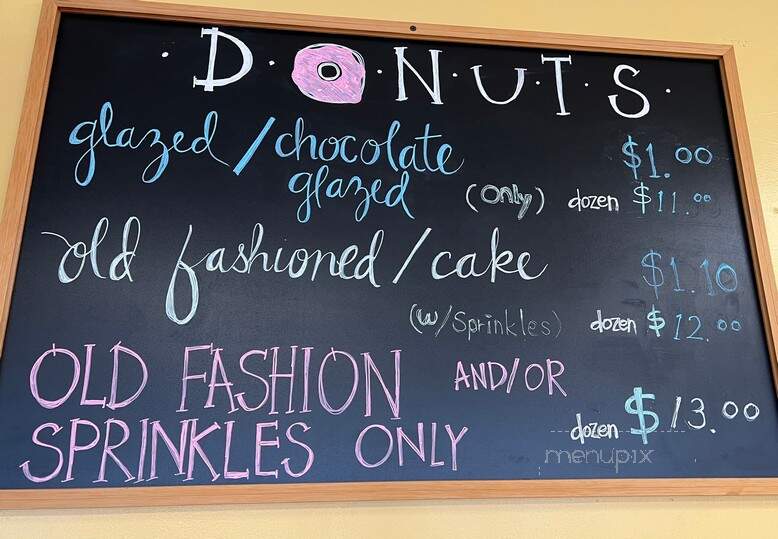 D·O·N·U·T·S
glazed / chocolate $1.00
glazed (only) dozen $11.00
old fashioned / cake $1.10
(w/Sprinkles) dozen $12.00
OLD FASHION AND/OR
SPRINKLES ONLY dozen $13.00
menupix